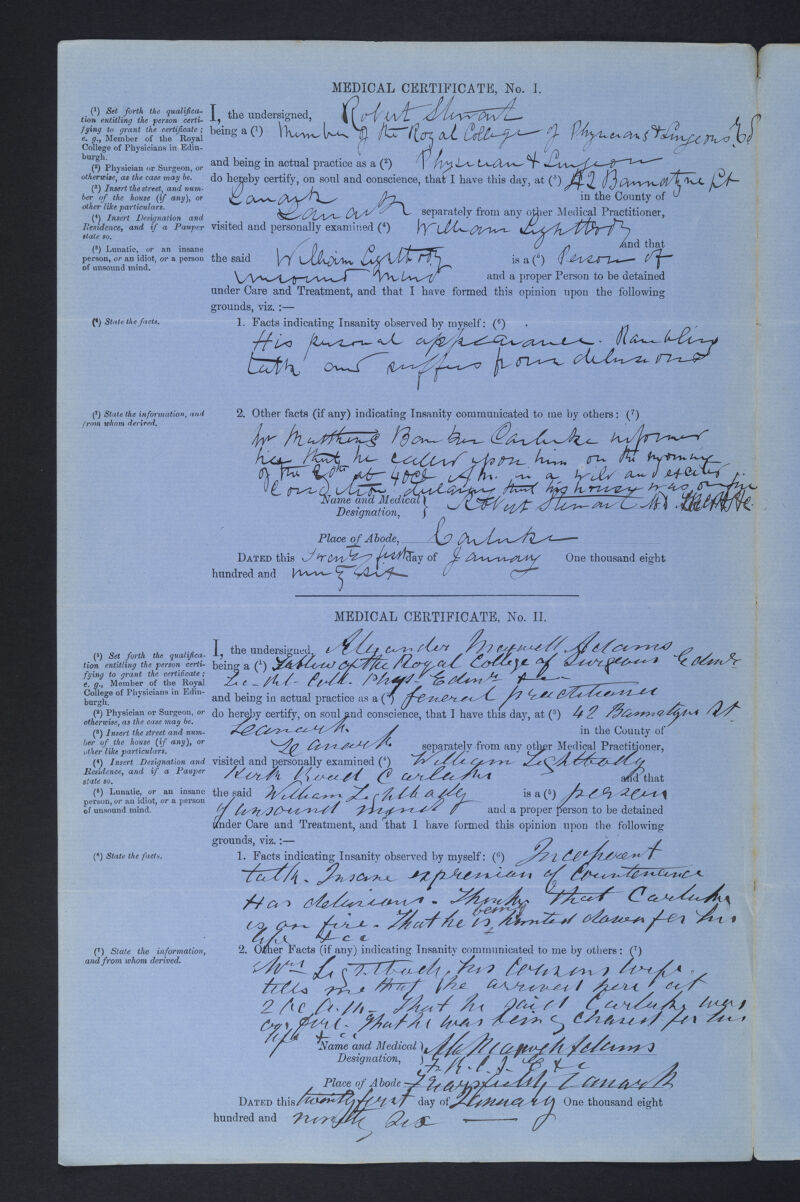 MEDICAL CERTIFICATE, No. I.
(1) Set forth the qualifica-
tion entitling the person certi-
fying to grant the certificate;
e. g., Member of the Royal
College of Physicians in Edin-
burgh.
(2) Physician or Surgeon, or
otherwise, as the case may be.
(3) Insert the street, and num-
ber of the house (if any), or
other like particulars.
(4) Insert Designation and
Residence, and if a Pauper
state so.
(5) Lunatic, or an insane
person, or an idiot, or a person
of unsound mind.
I, the undersigned, Robert Stewart
being a (1) Member of the Royal College of Physicians & Surgeons Ed
and being in actual practice as a (2) Physician & Surgeon
do hereby certify, on soul and conscience, that I have this day, at (3) 42 Bannatyne St
Lanark in the County of
Lanark separately from any other Medical Practitioner,
visited and personally examined (4) William Lightbody
and that
the said William Lightbody is a (5) Person of
unsound mind and a proper Person to be detained
under Care and Treatment, and that I have formed this opinion upon the following
grounds, viz.:—
(6) State the facts.
1. Facts indicating Insanity observed by myself: (6)
His personal appearance. Rambling
talk and suffers from delusions
(7) State the information, and
from whom derived.
2. Other facts (if any) indicating Insanity communicated to me by others: (7)
Mr Matthews Banker Carluke informed
me that he called upon him on the morning
of the 20th at 4 Ocl A.M. in a wild and excited
condition declaring that his house was on fire
Name and Medical Designation, Robert Stewart M.D.
Place of Abode, Carluke
DATED this Twenty first day of January One thousand eight
hundred and ninety six
MEDICAL CERTIFICATE, No. II.
(1) Set forth the qualifica-
tion entitling the person certi-
fying to grant the certificate;
e. g., Member of the Royal
College of Physicians in Edin-
burgh.
(2) Physician or Surgeon, or
otherwise, as the case may be.
(3) Insert the street and num-
ber of the house (if any), or
other like particulars.
(4) Insert Designation and
Residence, and if a Pauper
state so.
(5) Lunatic, or an insane
person, or an idiot, or a person
of unsound mind.
I, the undersigned, Alexander Maxwell Adams
being a (1) Fellow of the Royal College of Surgeons Edinr
Lic. Rl. Coll. Phys. Edinr &c
and being in actual practice as a (2) General Practitioner
do hereby certify, on soul and conscience, that I have this day, at (3) 42 Bannatyne St.
Leanark in the County of
Leanark separately from any other Medical Practitioner,
visited and personally examined (4) William Lightbody
Kirk Road Carluke and that
the said William Lightbody is a (5) person
of unsound mind and a proper person to be detained
under Care and Treatment, and that I have formed this opinion upon the following
grounds, viz.:—
(6) State the facts.
1. Facts indicating Insanity observed by myself: (6) Incoherent
talk. Insane expression of Countenance
Has delusions. Thinks that Carluke
is on fire. That he is being hunted down for his
life &cc
(7) State the information,
and from whom derived.
2. Other Facts (if any) indicating Insanity communicated to me by others: (7)
Mrs Lightbody, his Cousins wife,
tells me that he arrived here at
2 Oc A.M. That he said Carluke was
on fire. That he was being chased for his
life &cc
Name and Medical Designation, A Maxwell Adams
F.R.C.S. E &c
Place of Abode Lanark
DATED this twenty first day of January One thousand eight
hundred and ninety six